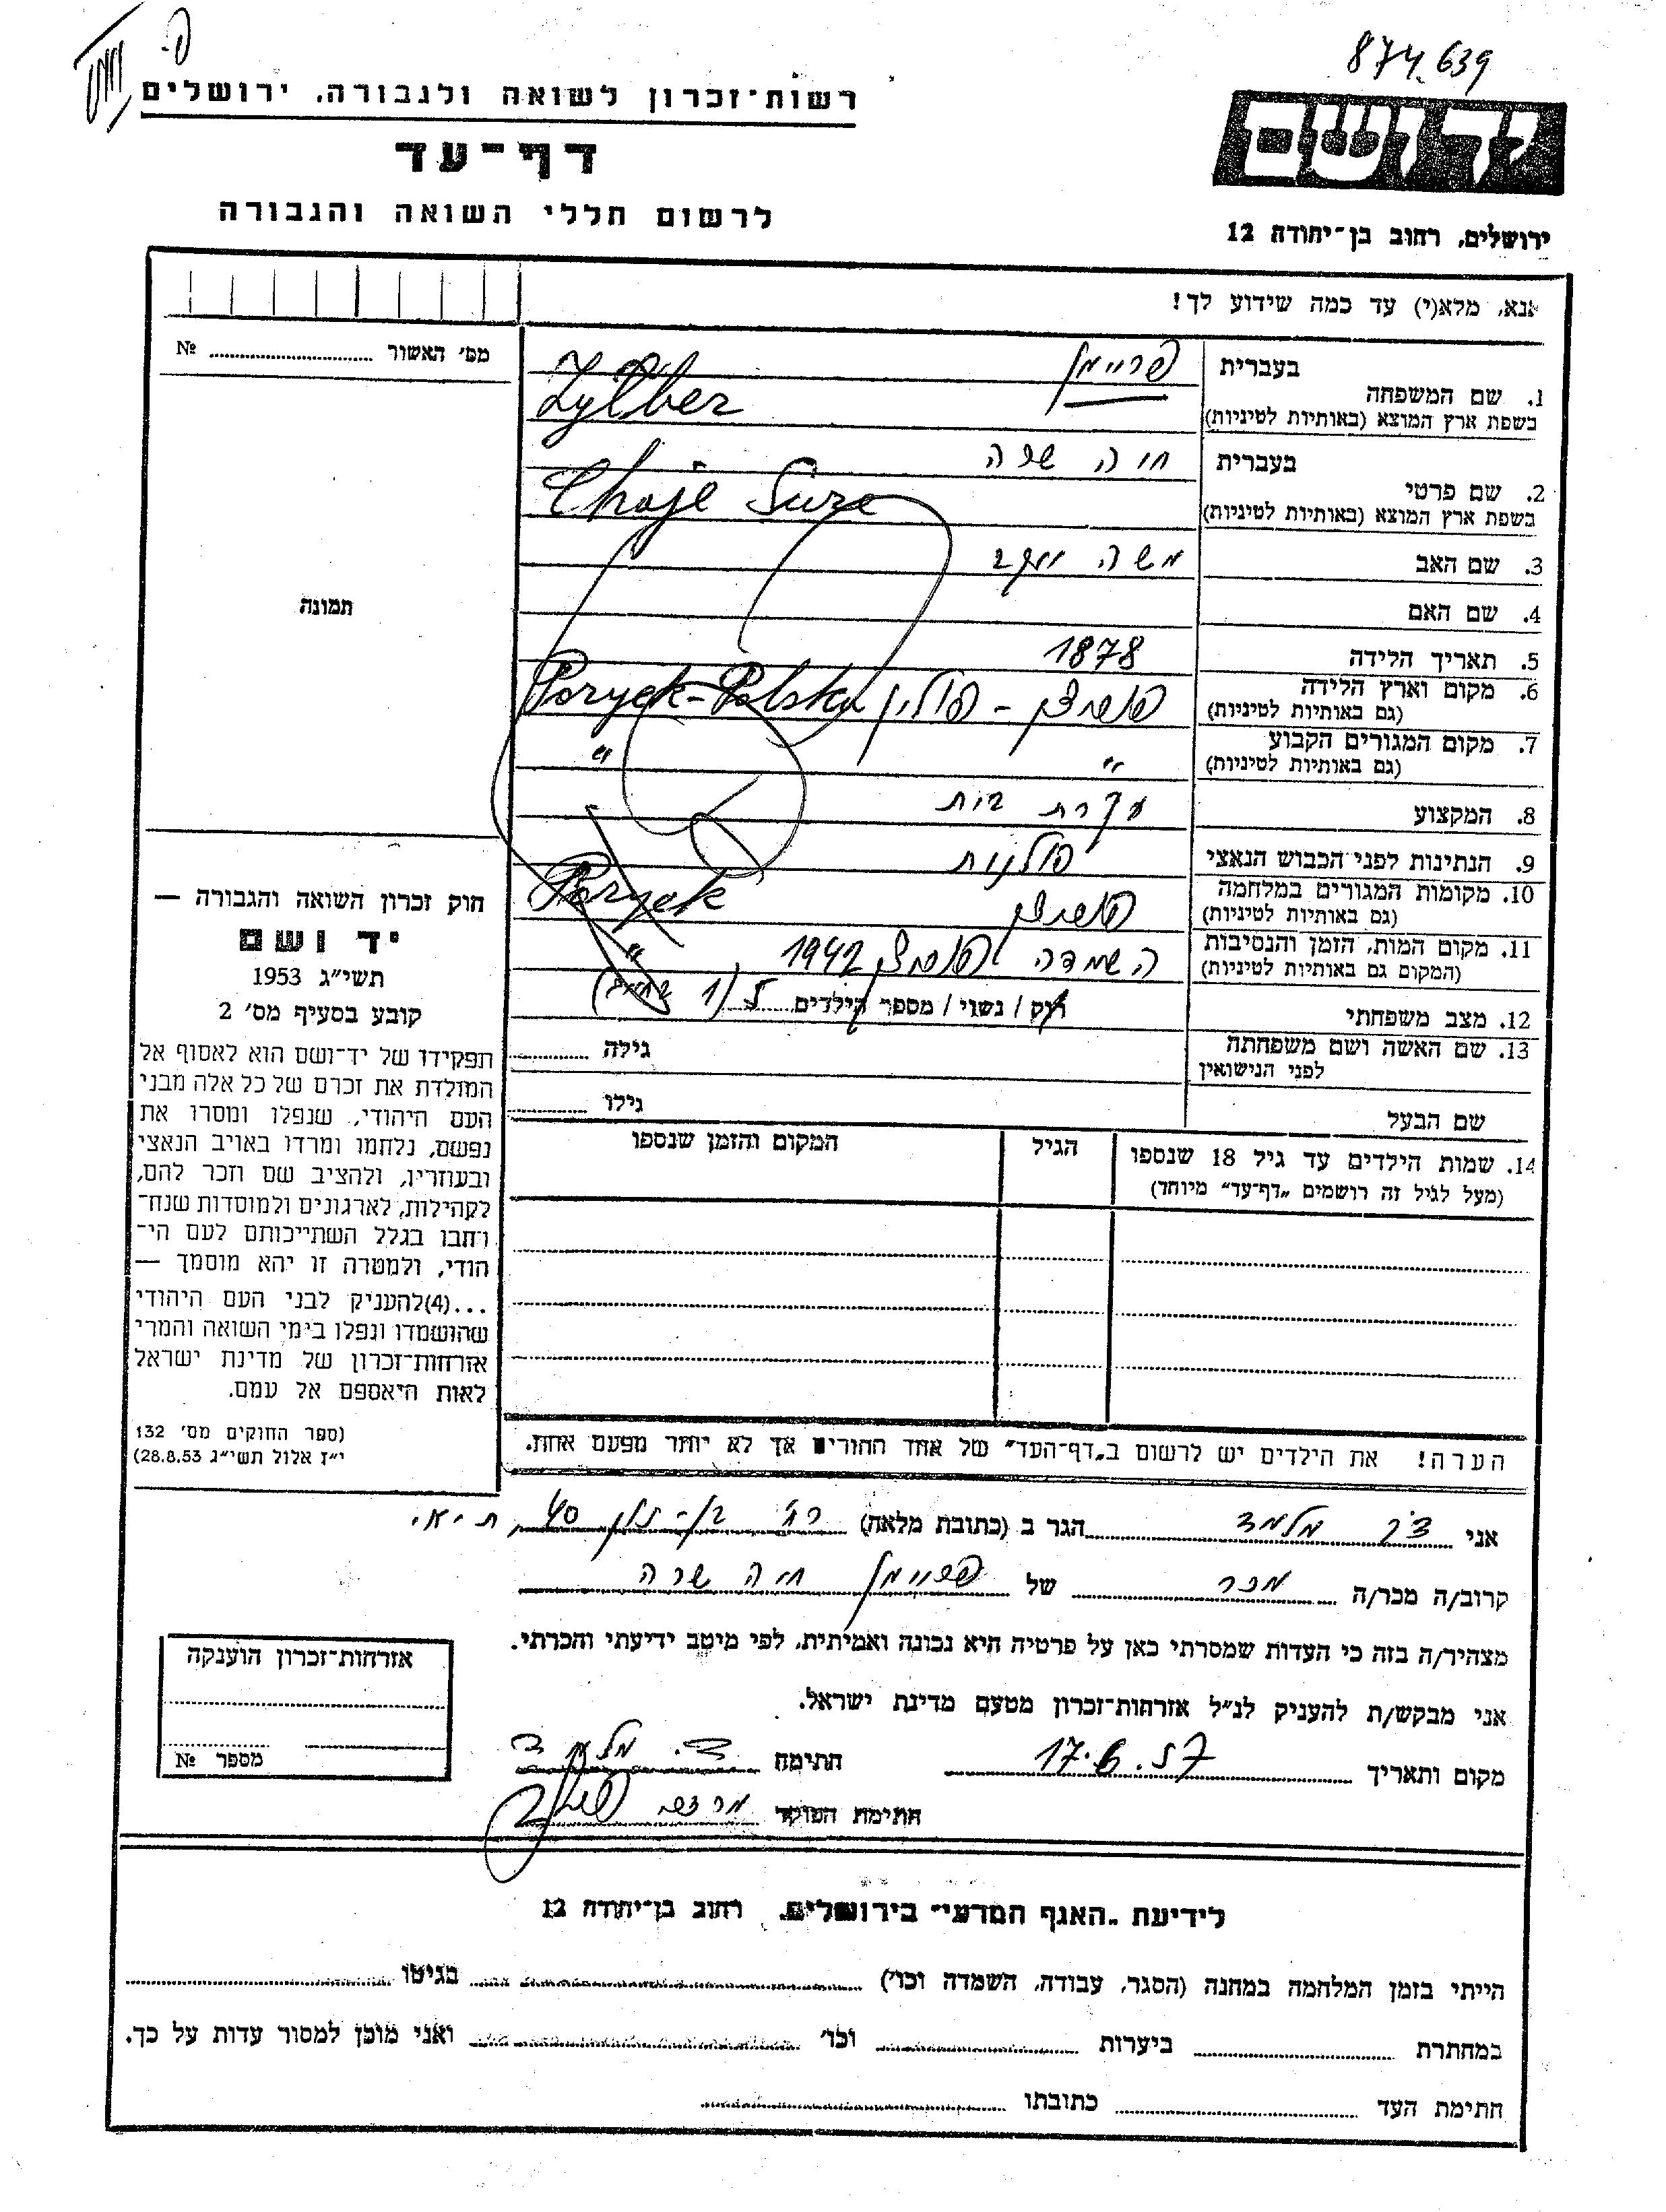 874.639
רשות־זכרון לשואה ולגבורה, ירושלים
דף־עד
לרשום חללי השואה והגבורה
יד ושם
ירושלים, רחוב בן־יהודה 12
אנא, מלא(י) עד כמה שידוע לך!
מס׳ האשור № 
בעברית פריימן
1. שם המשפחה
בשפת ארץ המוצא (באותיות לטיניות) Zylber
בעברית חיה שרה
2. שם פרטי
בשפת ארץ המוצא (באותיות לטיניות) Chaje Sura
3. שם האב משה יעקב
4. שם האם
5. תאריך הלידה 1878
6. מקום וארץ הלידה פוריצק - פולין Poryck-Polska
(גם באותיות לטיניות)
7. מקום המגורים הקבוע " "
(גם באותיות לטיניות)
8. המקצוע עקרת בית
9. הנתינות לפני הכבוש הנאצי פולנית
10. מקומות המגורים במלחמה פוריצק Poryck
(גם באותיות לטיניות)
11. מקום המות, הזמן והנסיבות השמדה פוריצק 1942 "
(המקום גם באותיות לטיניות)
12. מצב משפחתי רוק / נשוי / מספר הילדים 5 (1 בחיים)
13. שם האשה ושם משפחתה גילה
לפני הנישואין
שם הבעל גילו
14. שמות הילדים עד גיל 18 שנספו הגיל המקום והזמן שנספו
(מעל לגיל זה רושמים „דף־עד" מיוחד)
הערה! את הילדים יש לרשום ב„דף־העד" של אחד ההורים אך לא יותר מפעם אחת.
תמונה
חוק זכרון השואה והגבורה —
יד ושם
תשי״ג 1953
קובע בסעיף מס׳ 2
תפקידו של יד־ושם הוא לאסוף אל
המולדת את זכרם של כל אלה מבני
העם היהודי, שנפלו ומסרו את
נפשם, נלחמו ומרדו באויב הנאצי
ובעוזריו, ולהציב שם וזכר להם,
לקהילות, לארגונים ולמוסדות שנח־
רחבו בגלל השתייכותם לעם הי־
הודי, ולמטרה זו יהא מוסמך —
...(4)להעניק לבני העם היהודי
שהושמדו ונפלו בימי השואה והמרי
אזרחות־זכרון של מדינת ישראל
לאות היאספם אל עמם.
(ספר החוקים מס׳ 132
י״ז אלול תשי״ג 28.8.53)
אני מלמד הגר ב (כתובת מלאה) רח׳ 40
קרוב/ה מכר/ה מכר של פריימן חיה שרה
מצהיר/ה בזה כי העדות שמסרתי כאן על פרטיה היא נכונה ואמיתית, לפי מיטב ידיעתי והכרתי.
אני מבקש/ת להעניק לנ״ל אזרחות־זכרון מטעם מדינת ישראל.
מקום ותאריך 17.6.57 חתימה
חתימת הפוקד
אזרחות־זכרון הוענקה
מספר №
לידיעת „האגף המדעי" בירושלים, רחוב בן־יהודה 12
הייתי בזמן המלחמה במחנה (הסגר, עבודה, השמדה וכו׳) בגיטו
במחתרת ביערות וכו׳ ואני מוכן למסור עדות על כך.
חתימת העד כתובתו